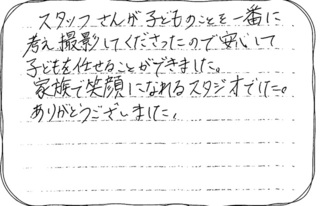 スタッフさんが子どものことを一番に
考え撮影してくださったので安心して
子どもを任せることができました。
家族で笑顔になれるスタジオでした。
ありがとうございました。